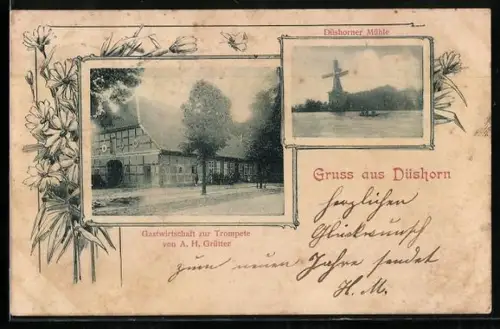 Düshorner Mühle
Gruss aus Düshorn
Gastwirtschaft zur Trompete
von A. H. Grütter
herzlichen
Glückwunsch
zum neuen Jahre sendet
H. M.